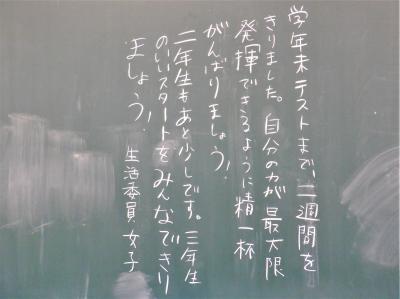 学年末テストまで、二週間を
きりました。自分の力が最大限
発揮できるように精一杯
がんばりましょう!
二年生もあと少しです。三年生
のいいスタートをみんなできり
ましょう!
生活委員女子